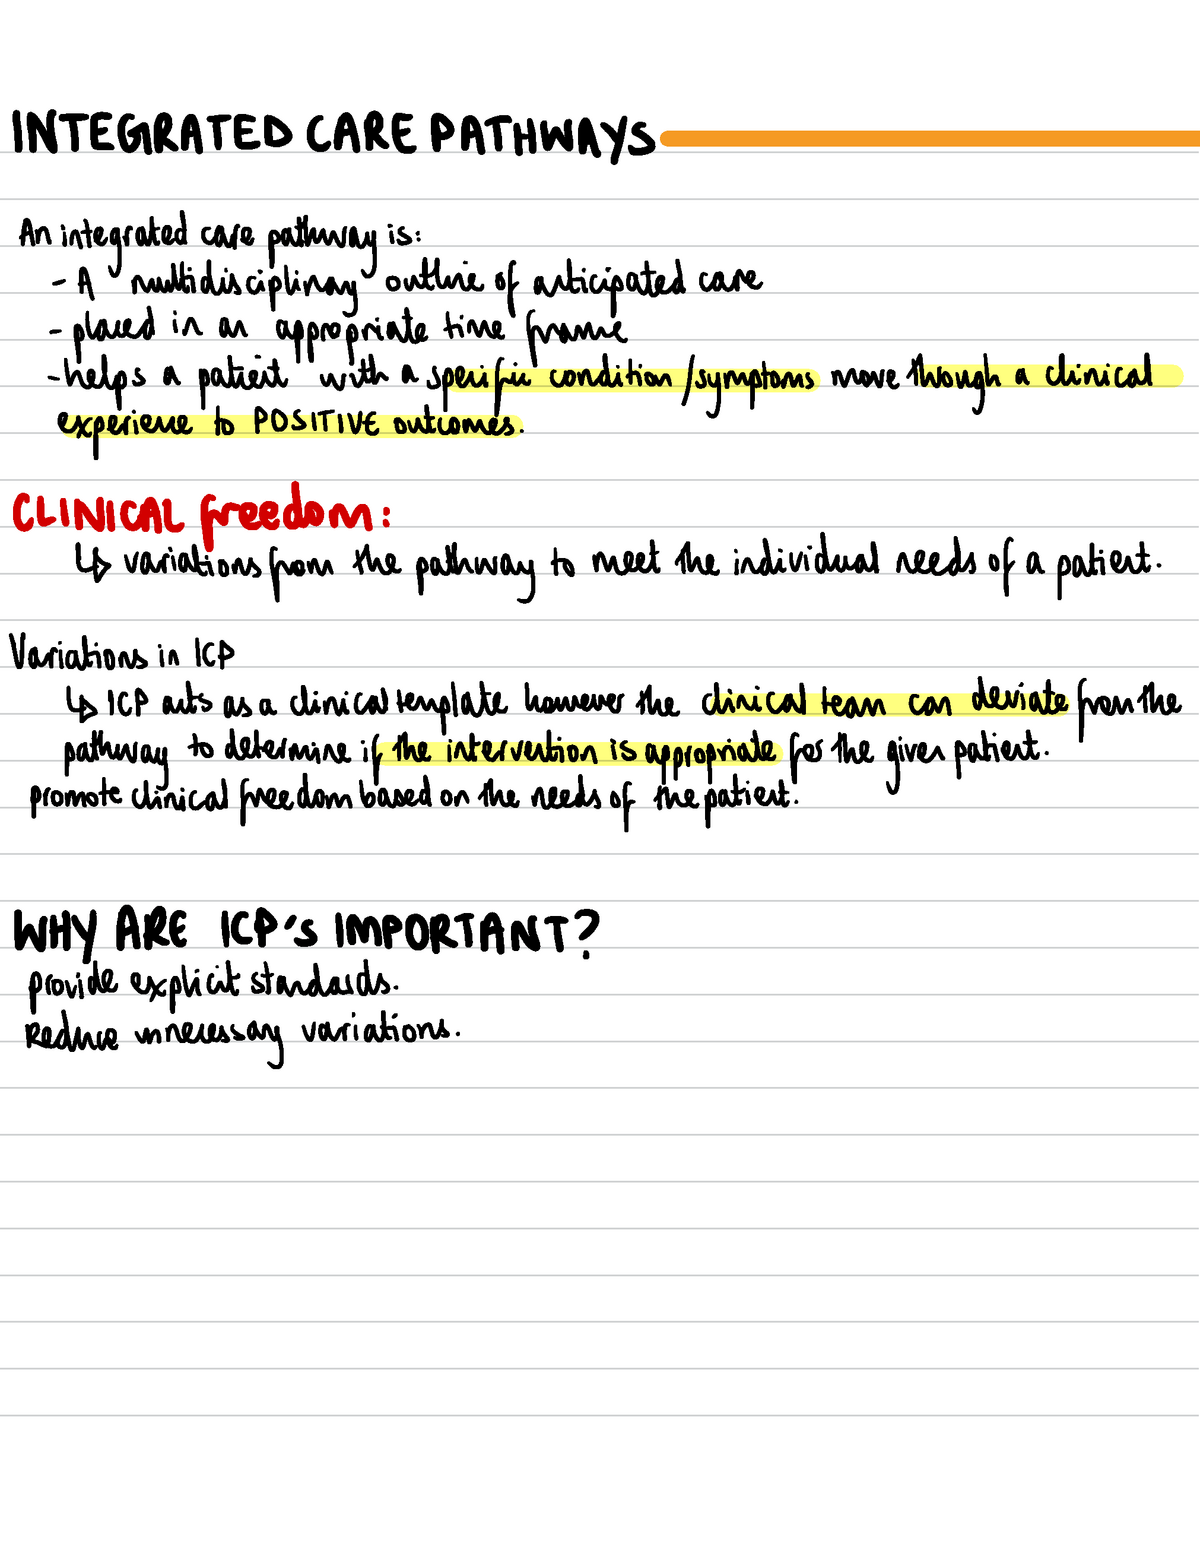 INTEGRATED CARE PATHWAYS
An integrated care pathway is:
- A multidisciplinary outline of anticipated care
- placed in an appropriate time frame
- helps a patient with a specific condition/symptoms move through a clinical
experience to POSITIVE outcomes.
CLINICAL freedom:
↳ variations from the pathway to meet the individual needs of a patient.
Variations in ICP
↳ ICP acts as a clinical template however the clinical team can deviate from the
pathway to determine if the intervention is appropriate for the given patient.
promote clinical freedom based on the needs of the patient.
WHY ARE ICP's IMPORTANT?
provide explicit standards.
Reduce unnecessary variations.